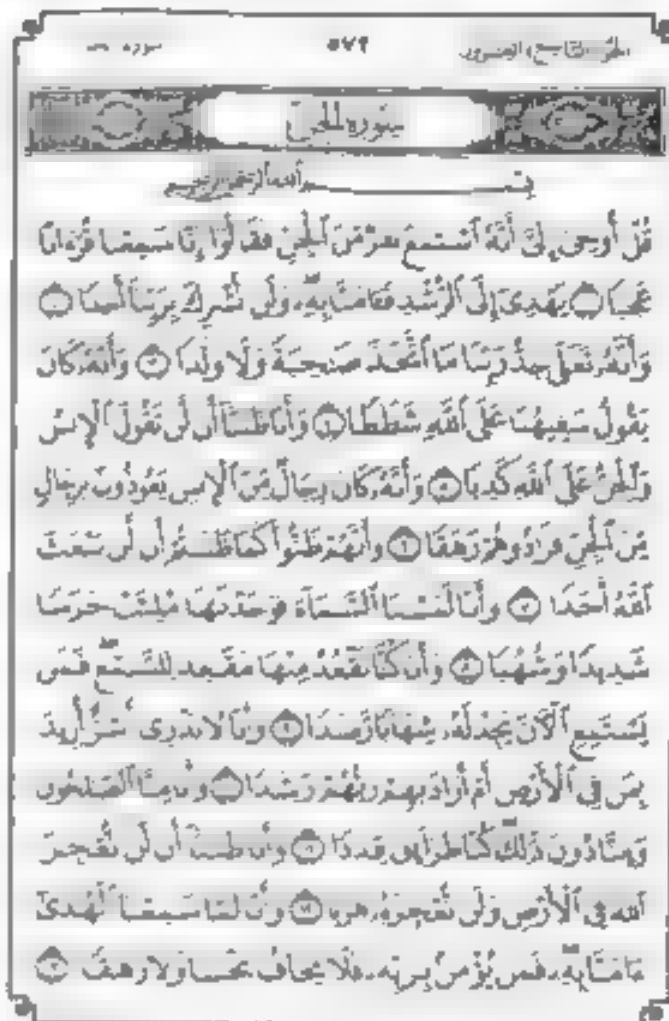 الجزء التاسع والعشرون ٥٧٢ سورة الجن
سورة الجن
بسم الله الرحمن الرحيم
قُلْ أُوحِىَ إِلَىَّ أَنَّهُ ٱسْتَمَعَ نَفَرٌ مِّنَ ٱلْجِنِّ فَقَالُوٓا۟ إِنَّا سَمِعْنَا قُرْءَانًا
عَجَبًا ١ يَهْدِىٓ إِلَى ٱلرُّشْدِ فَـَٔامَنَّا بِهِۦ وَلَن نُّشْرِكَ بِرَبِّنَآ أَحَدًا ٢
وَأَنَّهُۥ تَعَٰلَىٰ جَدُّ رَبِّنَا مَا ٱتَّخَذَ صَٰحِبَةً وَلَا وَلَدًا ٣ وَأَنَّهُۥ كَانَ
يَقُولُ سَفِيهُنَا عَلَى ٱللَّهِ شَطَطًا ٤ وَأَنَّا ظَنَنَّآ أَن لَّن تَقُولَ ٱلْإِنسُ
وَٱلْجِنُّ عَلَى ٱللَّهِ كَذِبًا ٥ وَأَنَّهُۥ كَانَ رِجَالٌ مِّنَ ٱلْإِنسِ يَعُوذُونَ بِرِجَالٍ
مِّنَ ٱلْجِنِّ فَزَادُوهُمْ رَهَقًا ٦ وَأَنَّهُمْ ظَنُّوا۟ كَمَا ظَنَنتُمْ أَن لَّن يَبْعَثَ
ٱللَّهُ أَحَدًا ٧ وَأَنَّا لَمَسْنَا ٱلسَّمَآءَ فَوَجَدْنَٰهَا مُلِئَتْ حَرَسًا
شَدِيدًا وَشُهُبًا ٨ وَأَنَّا كُنَّا نَقْعُدُ مِنْهَا مَقَٰعِدَ لِلسَّمْعِ فَمَن
يَسْتَمِعِ ٱلْـَٔانَ يَجِدْ لَهُۥ شِهَابًا رَّصَدًا ٩ وَأَنَّا لَا نَدْرِىٓ أَشَرٌّ أُرِيدَ
بِمَن فِى ٱلْأَرْضِ أَمْ أَرَادَ بِهِمْ رَبُّهُمْ رَشَدًا ١٠ وَأَنَّا مِنَّا ٱلصَّٰلِحُونَ
وَمِنَّا دُونَ ذَٰلِكَ كُنَّا طَرَآئِقَ قِدَدًا ١١ وَأَنَّا ظَنَنَّآ أَن لَّن نُّعْجِزَ
ٱللَّهَ فِى ٱلْأَرْضِ وَلَن نُّعْجِزَهُۥ هَرَبًا ١٢ وَأَنَّا لَمَّا سَمِعْنَا ٱلْهُدَىٰٓ
ءَامَنَّا بِهِۦ فَمَن يُؤْمِنۢ بِرَبِّهِۦ فَلَا يَخَافُ بَخْسًا وَلَا رَهَقًا ١٣